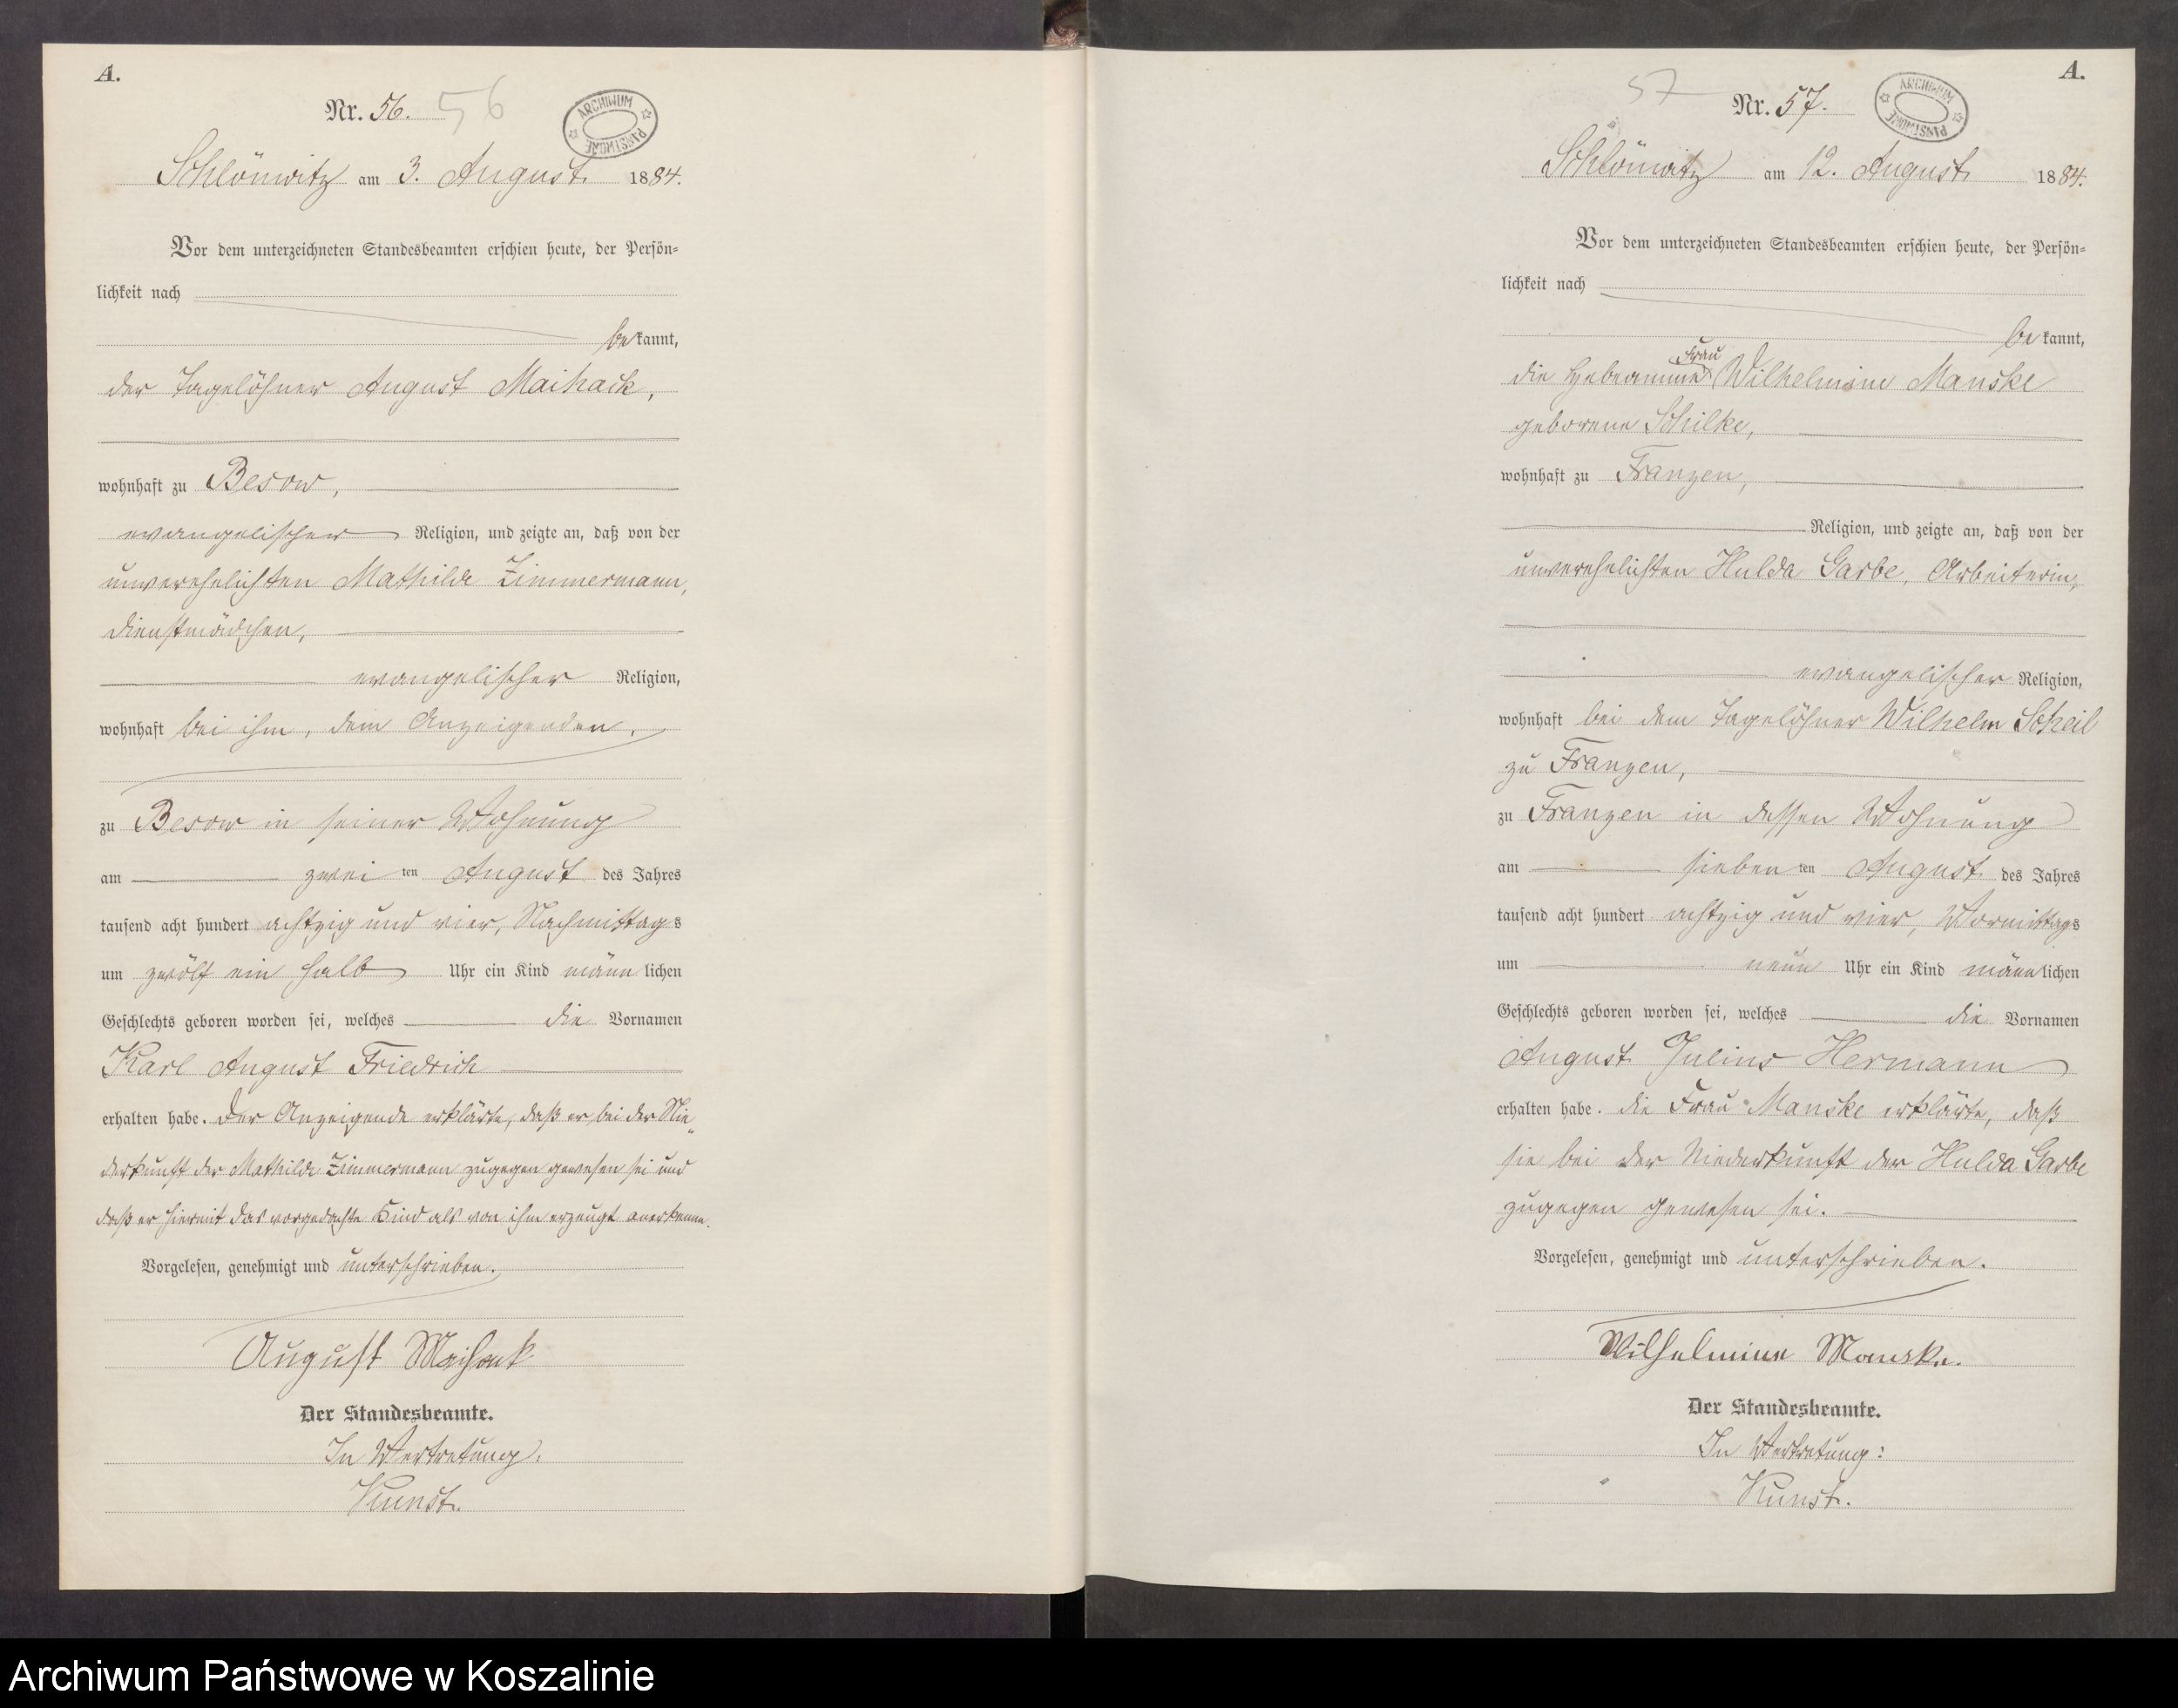 A.
Nr. 56. 56
ARCHIWUM PAŃSTWOWE
Schlönwitz am 3. August 1884.
Vor dem unterzeichneten Standesbeamten erschien heute, der Persön-
lichkeit nach
bekannt,
der Tagelöhner August Maihack,
wohnhaft zu Besow,
evangelischer Religion, und zeigte an, daß von der
unverehelichten Mathilde Zimmermann,
Dienstmädchen,
evangelischer Religion,
wohnhaft bei ihm, dem Anzeigenden,
zu Besow in seiner Wohnung
am zweiten August des Jahres
tausend acht hundert achtzig und vier, Nachmittags
um zwölf ein halb Uhr ein Kind männlichen
Geschlechts geboren worden sei, welches die Vornamen
Karl August Friedrich
erhalten habe. Der Anzeigende erklärte, daß er bei der Nie„
derkunft der Mathilde Zimmermann zugegen gewesen sei und
daß er hiermit das vorgedachte Kind als von ihm erzeugt anerkenne.
Vorgelesen, genehmigt und unterschrieben.
August Maihack
Der Standesbeamte.
In Vertretung:
Kunst.
A.
57
Nr. 57.
ARCHIWUM PAŃSTWOWE
Schlönwitz am 12. August 1884.
Vor dem unterzeichneten Standesbeamten erschien heute, der Persön-
lichkeit nach
bekannt,
die Hebeamme Frau Wilhelmine Manske
geborene Schilke,
wohnhaft zu Franzen,
Religion, und zeigte an, daß von der
unverehelichten Hulda Garbe, Arbeiterin,
evangelischer Religion,
wohnhaft bei dem Tagelöhner Wilhelm Scheil
zu Franzen,
zu Franzen in dessen Wohnung
am siebenten August des Jahres
tausend acht hundert achtzig und vier, Vormittags
um neun Uhr ein Kind männlichen
Geschlechts geboren worden sei, welches die Vornamen
August Julius Hermann
erhalten habe. Die Frau Manske erklärte, daß
sie bei der Niederkunft der Hulda Garbe
zugegen gewesen sei.
Vorgelesen, genehmigt und unterschrieben.
Wilhelmine Manske.
Der Standesbeamte.
In Vertretung:
Kunst.
Archiwum Państwowe w Koszalinie